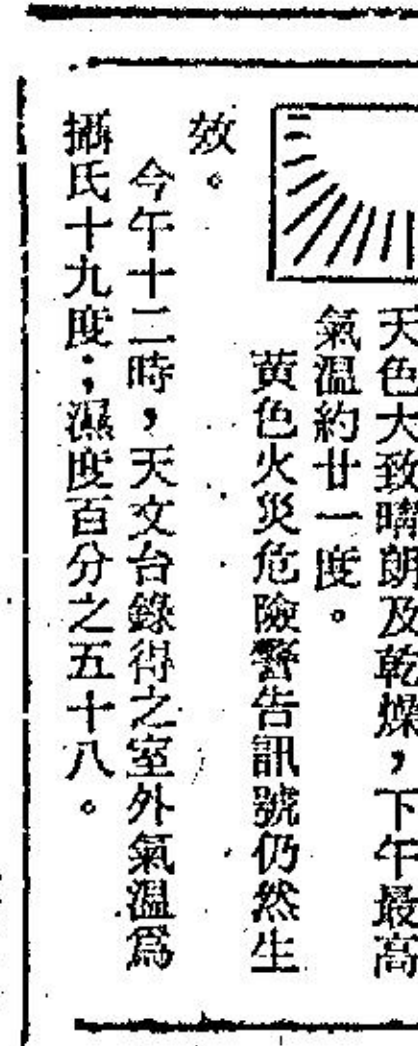 天色大致晴朗及乾燥，下午最高
氣溫約廿一度。
黄色火災危險警告訊號仍然生
效。
今午十二時，天文台錄得之室外氣溫爲
攝氏十九度；濕度百分之五十八。